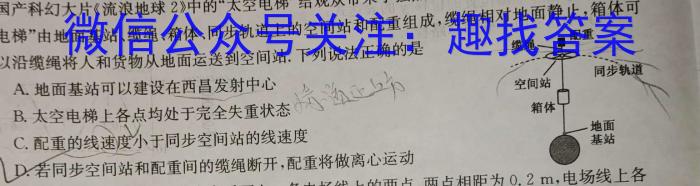 国产科幻大片《流浪地球2》中的“太空电梯”给观众带来了
电梯”由地面基站、缆绳、箱体、同步轨道上的空间站和配重组成,缆绳相对地面静止,箱体可
微信公众号关注：趣找答案
以沿缆绳将人和货物从地面运送到空间站.下列说法正确的是
A. 地面基站可以建设在西昌发射中心
B. 太空电梯上各点均处于完全失重状态
C. 配重的线速度小于同步空间站的线速度
D. 若同步空间站和配重间的缆绳断开,配重将做离心运动
配重
缆绳
同步轨道
空间站
箱体
地面
基站
电场线上的两点,两点相距为0.2 m,电场线上各